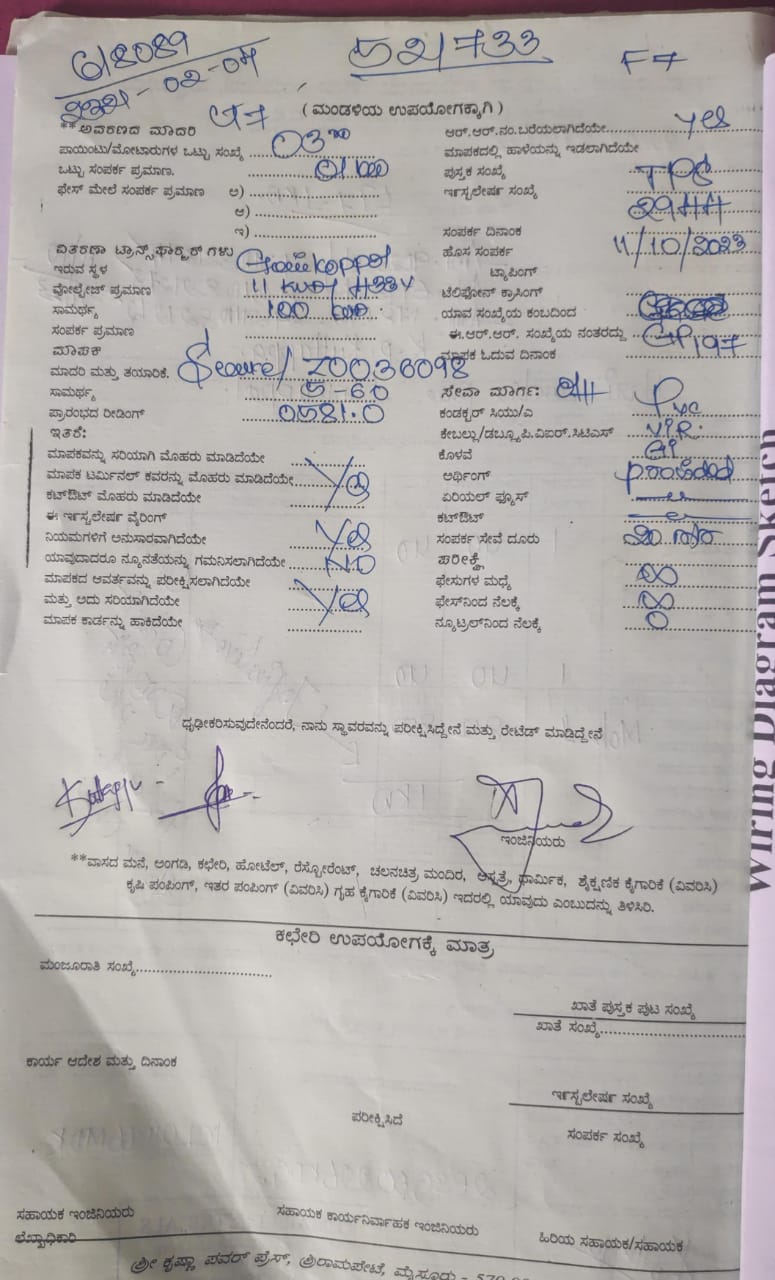 618089
521733
F7
( ಮಂಡಳಿಯ ಉಪಯೋಗಕ್ಕಾಗಿ )
**ಆವರಣದ ಮಾದರಿ
ಪಾಯಿಂಟು/ಮೋಟಾರುಗಳ ಒಟ್ಟು ಸಂಖ್ಯೆ 03
ಒಟ್ಟು ಸಂಪರ್ಕ ಪ್ರಮಾಣ.
ಫೇಸ್ ಮೇಲೆ ಸಂಪರ್ಕ ಪ್ರಮಾಣ ಅ)
ಆ)
ಇ)
ವಿತರಣಾ ಟ್ರಾನ್ಸ್‌ಫಾರ್ಮರ್ ಗಳು
ಇರುವ ಸ್ಥಳ
ವೋಲ್ಟೇಜ್ ಪ್ರಮಾಣ
ಸಾಮರ್ಥ್ಯ 100
ಸಂಪರ್ಕ ಪ್ರಮಾಣ
ಮಾಪಕ
ಮಾದರಿ ಮತ್ತು ತಯಾರಿಕೆ. Secure
ಸಾಮರ್ಥ್ಯ 5-60
ಪ್ರಾರಂಭದ ರೀಡಿಂಗ್ 0581.0
ಇತರೆ:
ಮಾಪಕವನ್ನು ಸರಿಯಾಗಿ ಮೊಹರು ಮಾಡಿದೆಯೇ
ಮಾಪಕ ಟರ್ಮಿನಲ್ ಕವರನ್ನು ಮೊಹರು ಮಾಡಿದೆಯೇ Yes
ಕಟ್‌ಔಟ್ ಮೊಹರು ಮಾಡಿದೆಯೇ
ಈ ಇನ್‌ಸ್ಟಲೇಷನ್ ವೈರಿಂಗ್
ನಿಯಮಗಳಿಗೆ ಅನುಸಾರವಾಗಿದೆಯೇ Yes
ಯಾವುದಾದರೂ ನ್ಯೂನತೆಯನ್ನು ಗಮನಿಸಲಾಗಿದೆಯೇ NO
ಮಾಪಕದ ಆವರ್ತವನ್ನು ಪರೀಕ್ಷಿಸಲಾಗಿದೆಯೇ
ಮತ್ತು ಅದು ಸರಿಯಾಗಿದೆಯೇ Yes
ಮಾಪಕ ಕಾರ್ಡನ್ನು ಹಾಕಿದೆಯೇ
ಆರ್.ಆರ್.ನಂ.ಬರೆಯಲಾಗಿದೆಯೇ Yes
ಮಾಪಕದಲ್ಲಿ ಹಾಳೆಯನ್ನು ಇಡಲಾಗಿದೆಯೇ
ಪುಸ್ತಕ ಸಂಖ್ಯೆ
ಇನ್‌ಸ್ಟಲೇಷನ್ ಸಂಖ್ಯೆ
ಸಂಪರ್ಕ ದಿನಾಂಕ 11/10/2023
ಹೊಸ ಸಂಪರ್ಕ
ಟ್ಯಾಪಿಂಗ್
ಟೆಲಿಫೋನ್ ಕ್ರಾಸಿಂಗ್
ಯಾವ ಸಂಖ್ಯೆಯ ಕಂಬದಿಂದ
ಈ.ಆರ್.ಆರ್. ಸಂಖ್ಯೆಯ ನಂತರದ್ದು
ಮಾಪಕ ಓದುವ ದಿನಾಂಕ
ಸೇವಾ ಮಾರ್ಗ:
ಕಂಡಕ್ಟರ್ ಸಿಯು/ಎ Pvc
ಕೇಬಲ್ಲು/ಡಬ್ಲ್ಯೂಪಿ.ವಿಐಆರ್.ಸಿಟಿಎಸ್ V.I.R.
ಕೊಳವೆ GI
ಅರ್ಥಿಂಗ್ provided
ಏರಿಯಲ್ ಫ್ಯೂಸ್
ಕಟ್‌ಔಟ್
ಸಂಪರ್ಕ ಸೇವೆ ದೂರು
ಪರೀಕ್ಷೆ
ಫೇಸುಗಳ ಮಧ್ಯೆ ∞
ಫೇಸ್‌ನಿಂದ ನೆಲಕ್ಕೆ ∞
ನ್ಯೂಟ್ರಲ್‌ನಿಂದ ನೆಲಕ್ಕೆ 0
ಧೃಢೀಕರಿಸುವುದೇನೆಂದರೆ, ನಾನು ಸ್ಥಾವರವನ್ನು ಪರೀಕ್ಷಿಸಿದ್ದೇನೆ ಮತ್ತು ರೇಟೆಡ್ ಮಾಡಿದ್ದೇನೆ
ಇಂಜಿನಿಯರು
**ವಾಸದ ಮನೆ, ಅಂಗಡಿ, ಕಛೇರಿ, ಹೋಟೆಲ್, ರೆಸ್ಟೋರೆಂಟ್, ಚಲನಚಿತ್ರ ಮಂದಿರ, ಆಸ್ಪತ್ರೆ, ಧಾರ್ಮಿಕ, ಶೈಕ್ಷಣಿಕ ಕೈಗಾರಿಕೆ (ವಿವರಿಸಿ)
ಕೃಷಿ ಪಂಪಿಂಗ್, ಇತರ ಪಂಪಿಂಗ್ (ವಿವರಿಸಿ) ಗೃಹ ಕೈಗಾರಿಕೆ (ವಿವರಿಸಿ) ಇದರಲ್ಲಿ ಯಾವುದು ಎಂಬುದನ್ನು ತಿಳಿಸಿರಿ.
ಕಛೇರಿ ಉಪಯೋಗಕ್ಕೆ ಮಾತ್ರ
ಮಂಜೂರಾತಿ ಸಂಖ್ಯೆ
ಖಾತೆ ಪುಸ್ತಕ ಪುಟ ಸಂಖ್ಯೆ
ಖಾತೆ ಸಂಖ್ಯೆ
ಕಾರ್ಯ ಆದೇಶ ಮತ್ತು ದಿನಾಂಕ
ಇನ್‌ಸ್ಟಲೇಷನ್ ಸಂಖ್ಯೆ
ಪರೀಕ್ಷಿಸಿದೆ
ಸಂಪರ್ಕ ಸಂಖ್ಯೆ
ಸಹಾಯಕ ಇಂಜಿನಿಯರು
ಸಹಾಯಕ ಕಾರ್ಯನಿರ್ವಾಹಕ ಇಂಜಿನಿಯರು
ಹಿರಿಯ ಸಹಾಯಕ/ಸಹಾಯಕ
ಲೆಖ್ಖಾಧಿಕಾರಿ
ಶ್ರೀ ಕೃಷ್ಣಾ ಪವರ್ ಪ್ರೆಸ್, ಶ್ರೀರಾಮಪೇಟೆ, ಮೈಸೂರು - 570
Wiring Diagram Sketch